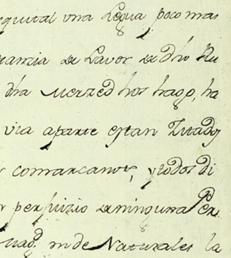 equital una legua poco mas
anzia de Lavor de dho Ru
dha Merzed hos hago, ha
via aparte estan Zitados
comarcanos, y todos di
r perjuizio de ninguna Per
de Naturales la